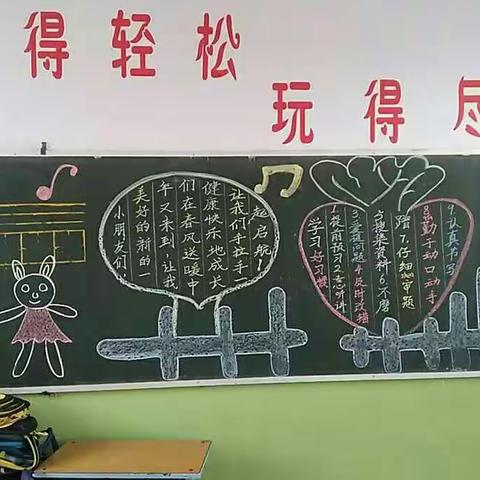 得轻松
玩得尽
小朋友们
美好的新的一
年又来到,让我
们在春风送暖中
健康快乐地成长
让我们手拉手
起启航!
学习好习惯
1.提前预习2.专心听讲
3.爱提问题4.及时改错
5.搜集资料6.不磨
蹭7.仔细审题
8.勤于动口动手
9.认真书写